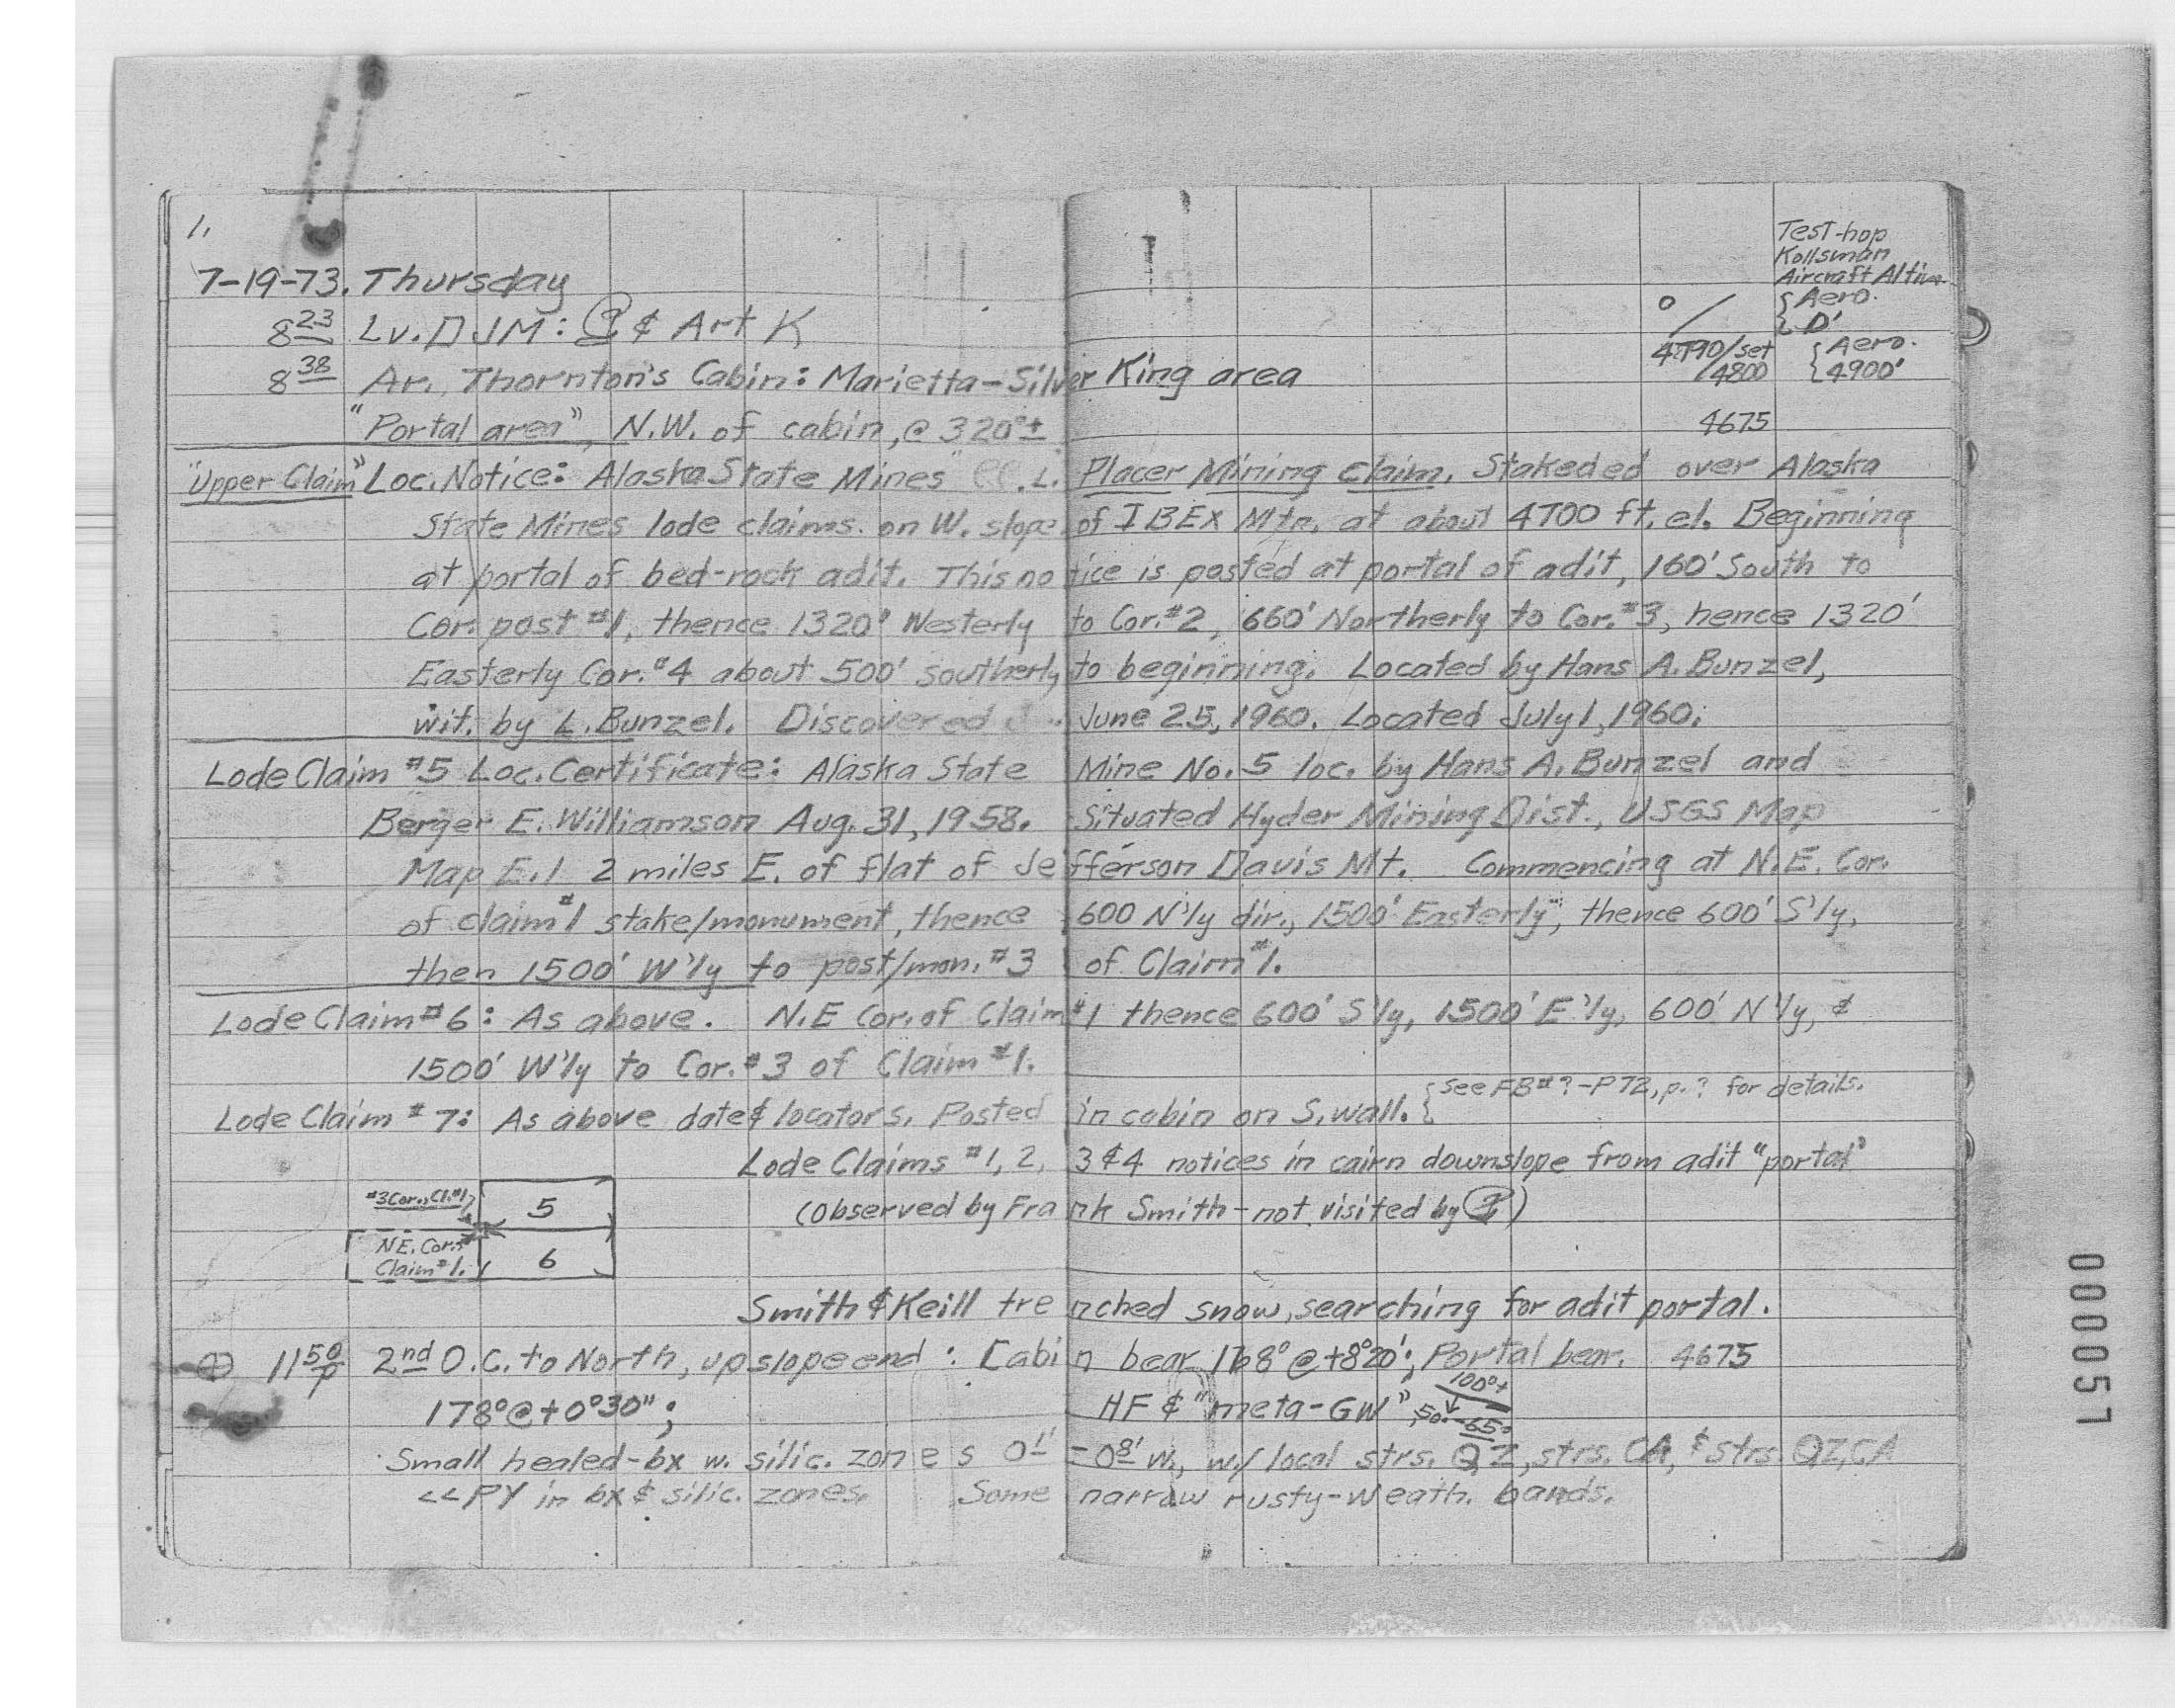 1.
Test-hop
Kollsman
Aircraft Altim.
7-19-73. Thursday
0 / { Aero.
D'
8 23 Lv. DJM: & Art K
4790/set 4800 { Aero. 4900'
8 38 Ar. Thornton's Cabin: Marietta-Silver King area
"Portal area", N.W. of cabin, @ 320°± 4675
"Upper Claim" Loc. Notice: Alaska State Mines" Placer Mining Claim. Stakeded over Alaska
State Mines lode claims. on W. slope of IBEX Mtn. at about 4700 ft. el. Beginning
at portal of bed-rock adit. This notice is posted at portal of adit, 160' South to
Cor. post #1, thence 1320' Westerly to Cor. #2, 660' Northerly to Cor. #3, hence 1320'
Easterly Cor. #4 about 500' southerly to beginning. Located by Hans A. Bunzel,
wit. by L. Bunzel. Discovered June 25, 1960. Located July 1, 1960.
Lode Claim #5 Loc. Certificate: Alaska State Mine No. 5 loc. by Hans A. Bunzel and
Berger E. Williamson Aug. 31, 1958. Situated Hyder Mining Dist., USGS Map
Map E.1 2 miles E. of flat of Jefferson Davis Mt. Commencing at N.E. Cor.
of claim #1 stake/monument, thence 600 N'ly dir., 1500' Easterly; thence 600' S'ly,
then 1500' W'ly to post/mon. #3 of Claim #1.
Lode Claim #6: As above. N.E Cor. of Claim #1 thence 600' S'ly, 1500' E'ly, 600' N'ly, &
1500' W'ly to Cor. #3 of Claim #1.
Lode Claim #7: As above date & locators. Posted in cabin on S. wall. { see FB#?-P72, p.? for details.
Lode Claims #1, 2, 3 & 4 notices in cairn downslope from adit "portal"
#3 Cor., Cl. #1 5 (observed by Frank Smith - not visited by )
N.E. Cor. Claim #1. 6
Smith & Keill trenched snow, searching for adit portal.
11 50 p 2nd O.C. to North, upslope end: Cabin bear. 168° @ +8°20'; Portal bear. 4675
178° @ +0°30"; HF & "meta-GW", 100°± 50-65°
Small healed-bx w. silic. zones 0 1' - 0 8' w., w/ local strs. QZ, strs. CA, & strs. QZ, CA
<< PY in bx & silic. zones. Some narrow rusty-weath. bands.
000051